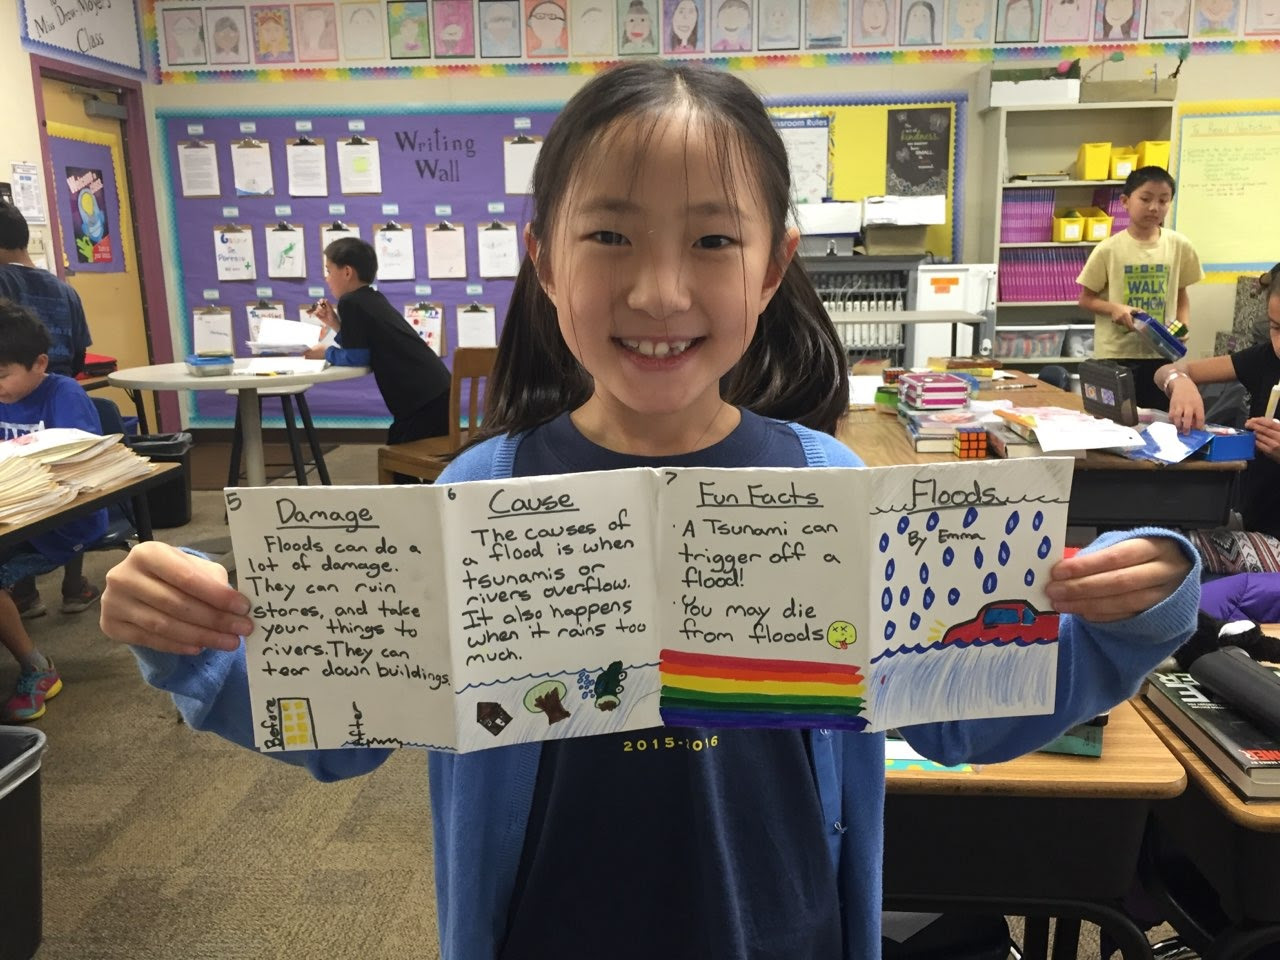 Miss Drew-Moyer's
Class
Writing
Wall
Classroom Rules
kindness
SMALL
WALK
ATHON
5
Damage
Floods can do a
lot of damage.
They can ruin
stores, and take
your things to
rivers. They can
tear down buildings.
Before
After
6
Cause
The causes of
a flood is when
tsunamis or
rivers overflow.
It also happens
when it rains too
much.
7
Fun Facts
· A Tsunami can
trigger off a
flood!
· You may die
from floods
Floods
By Emma
2015-2016